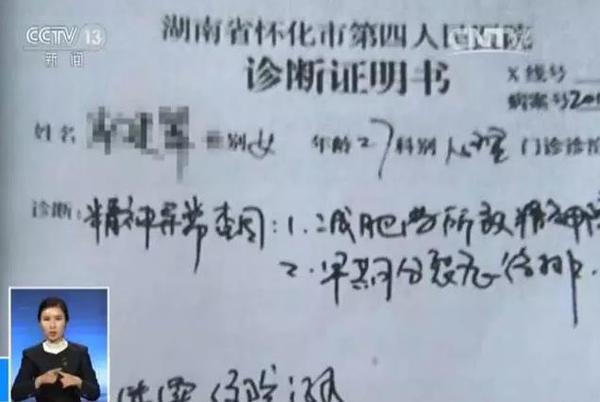 CCTV 13
新闻
湖南省怀化市第四人民医院
诊断证明书
X线号
病案号20
姓名 别女 年龄27科别心理 门诊
诊断:精神异常查因:1.减肥药所致精神
2.早期分裂症待排.